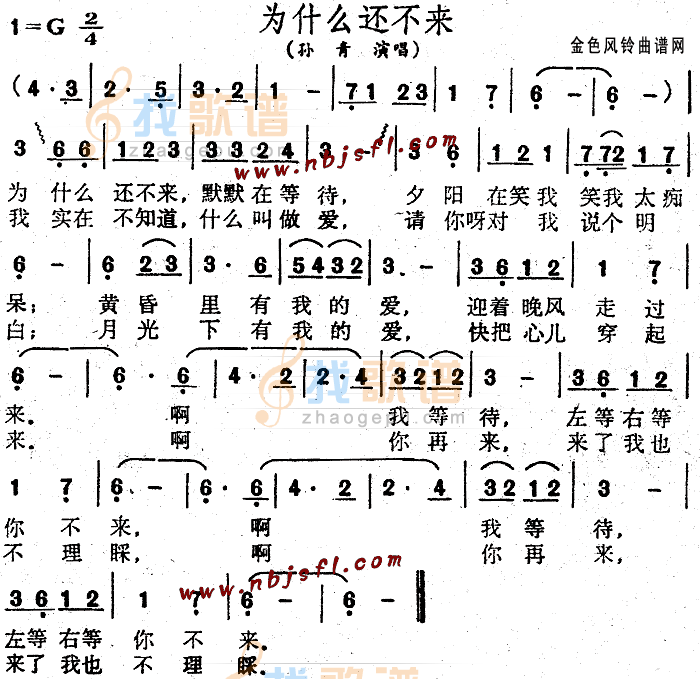 为什么还不来
1=G 2/4
(孙 青 演唱)
金色风铃曲谱网
(4·3 | 2·5 | 3·2 | 1 - | 71 23 | 1 7 | 6 - | 6 - ) |
找歌谱
zhaogepu.com
www.nbjsfl.com
3 66 | 123 | 33 24 | 3 - | 3 6 | 12 1 | 772 17 |
为 什么 还不来, 默默在等待, 夕阳在笑我 笑我太痴
我 实在 不知道, 什么叫做爱, 请你呀对 我 说个明
6 - | 6 23 | 3·6 | 5432 | 3. - | 36 12 | 1 7 |
呆; 黄昏 里有我的爱, 迎着晚风 走过
白; 月光 下有我的爱, 快把心儿 穿起
6 - | 6·6 | 4·2 | 2·4 | 3212 | 3 - | 36 12 |
找歌谱
zhaogepu.com
来. 啊 我等待, 左等右等
来. 啊 你再来, 来了我也
1 7 | 6 - | 6·6 | 4·2 | 2·4 | 32 12 | 3 - |
你不来, 啊 我等待,
不理睬, 啊 你再来,
www.nbjsfl.com
36 12 | 1 7 | 6 - | 6 - ‖
左等右等 你不来.
来了我也 不理睬.
找歌谱